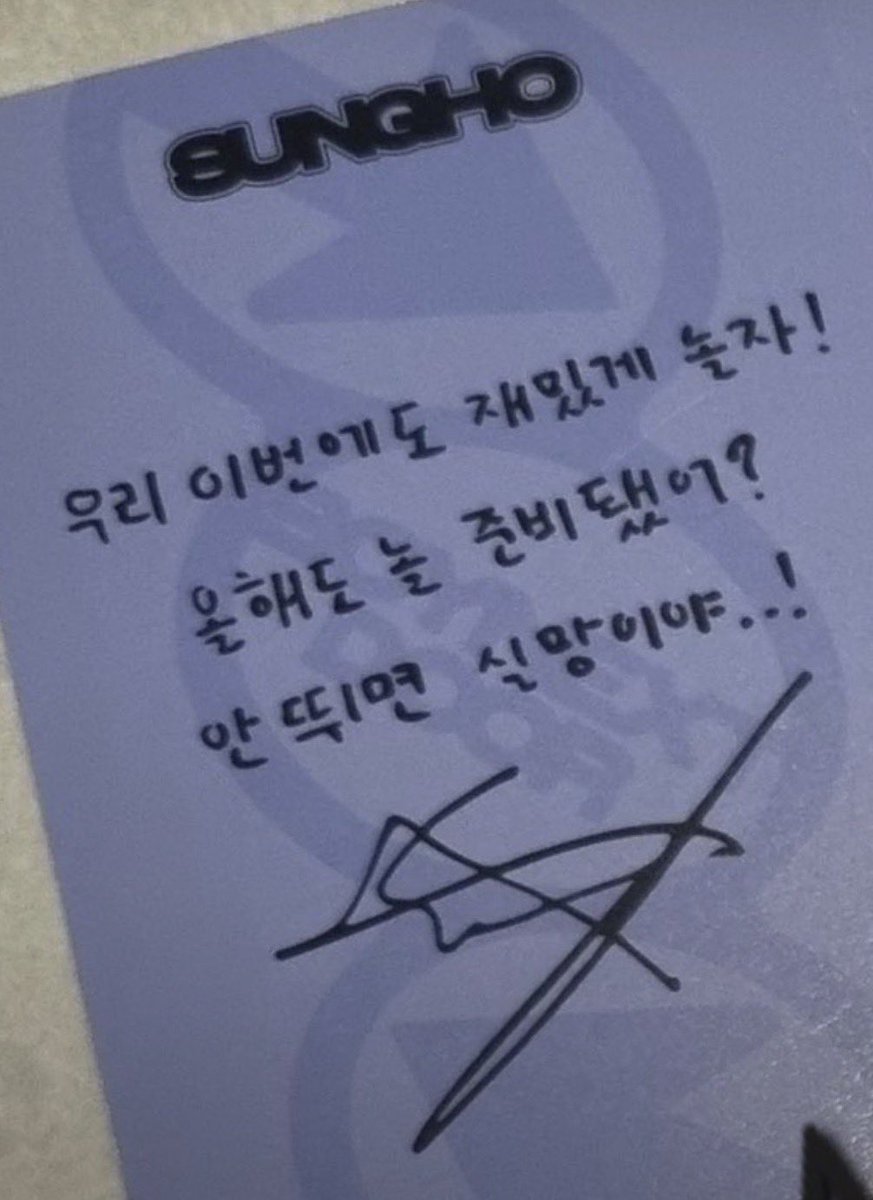 SUNGHO
우리 이번에도 재밌게 놀자!
올해도 놀 준비됐어?
안 뛰면 실망이야..!